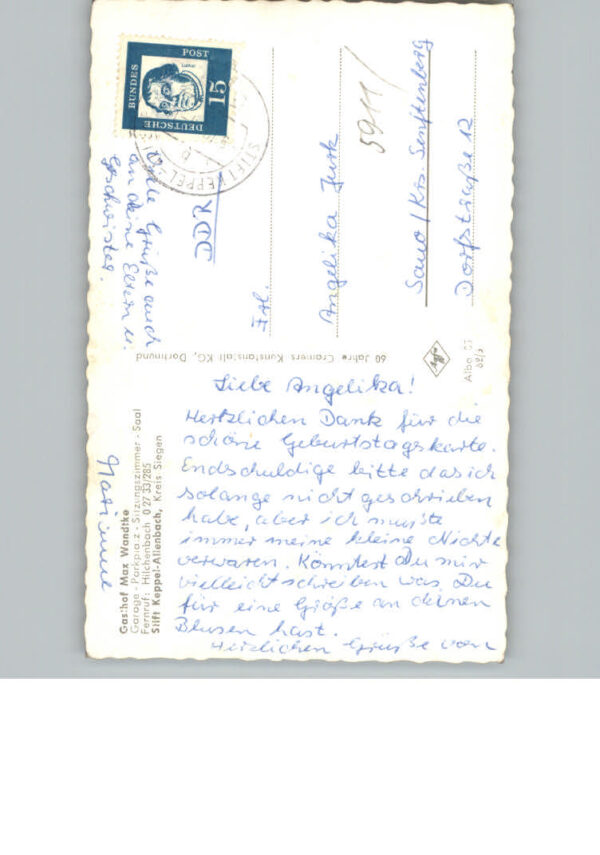 Liebe Angelika!
Hertzlichen Dank für die
schöne Geburtstagskarte.
Endschuldige bitte das ich
solange nicht geschrieben
habe, aber ich musste
immer meine kleine Nichte
verwaren. Könntest Du mir
vielleicht schreiben was Du
für eine Größe an deinen
Blusen hast.
Herzlichen Grüße von
Marianne
Viele Grüße auch
an deine Eltern u.
Geschwister.
Gasthof Max Wandtke
Garage - Parkplatz - Sitzungszimmer - Saal
Fernruf: Hilchenbach 0 27 33/285
Stift Keppel-Allenbach, Kreis Siegen
60 Jahre Cramers Kunstanstalt KG, Dortmund
DEUTSCHE
BUNDES
POST
15
STIFT KEPPEL
DDR
Frl.
Angelika Jurk
5911/
Sano / Krs. Senftenberg
Dorfstraße 12
Agfa